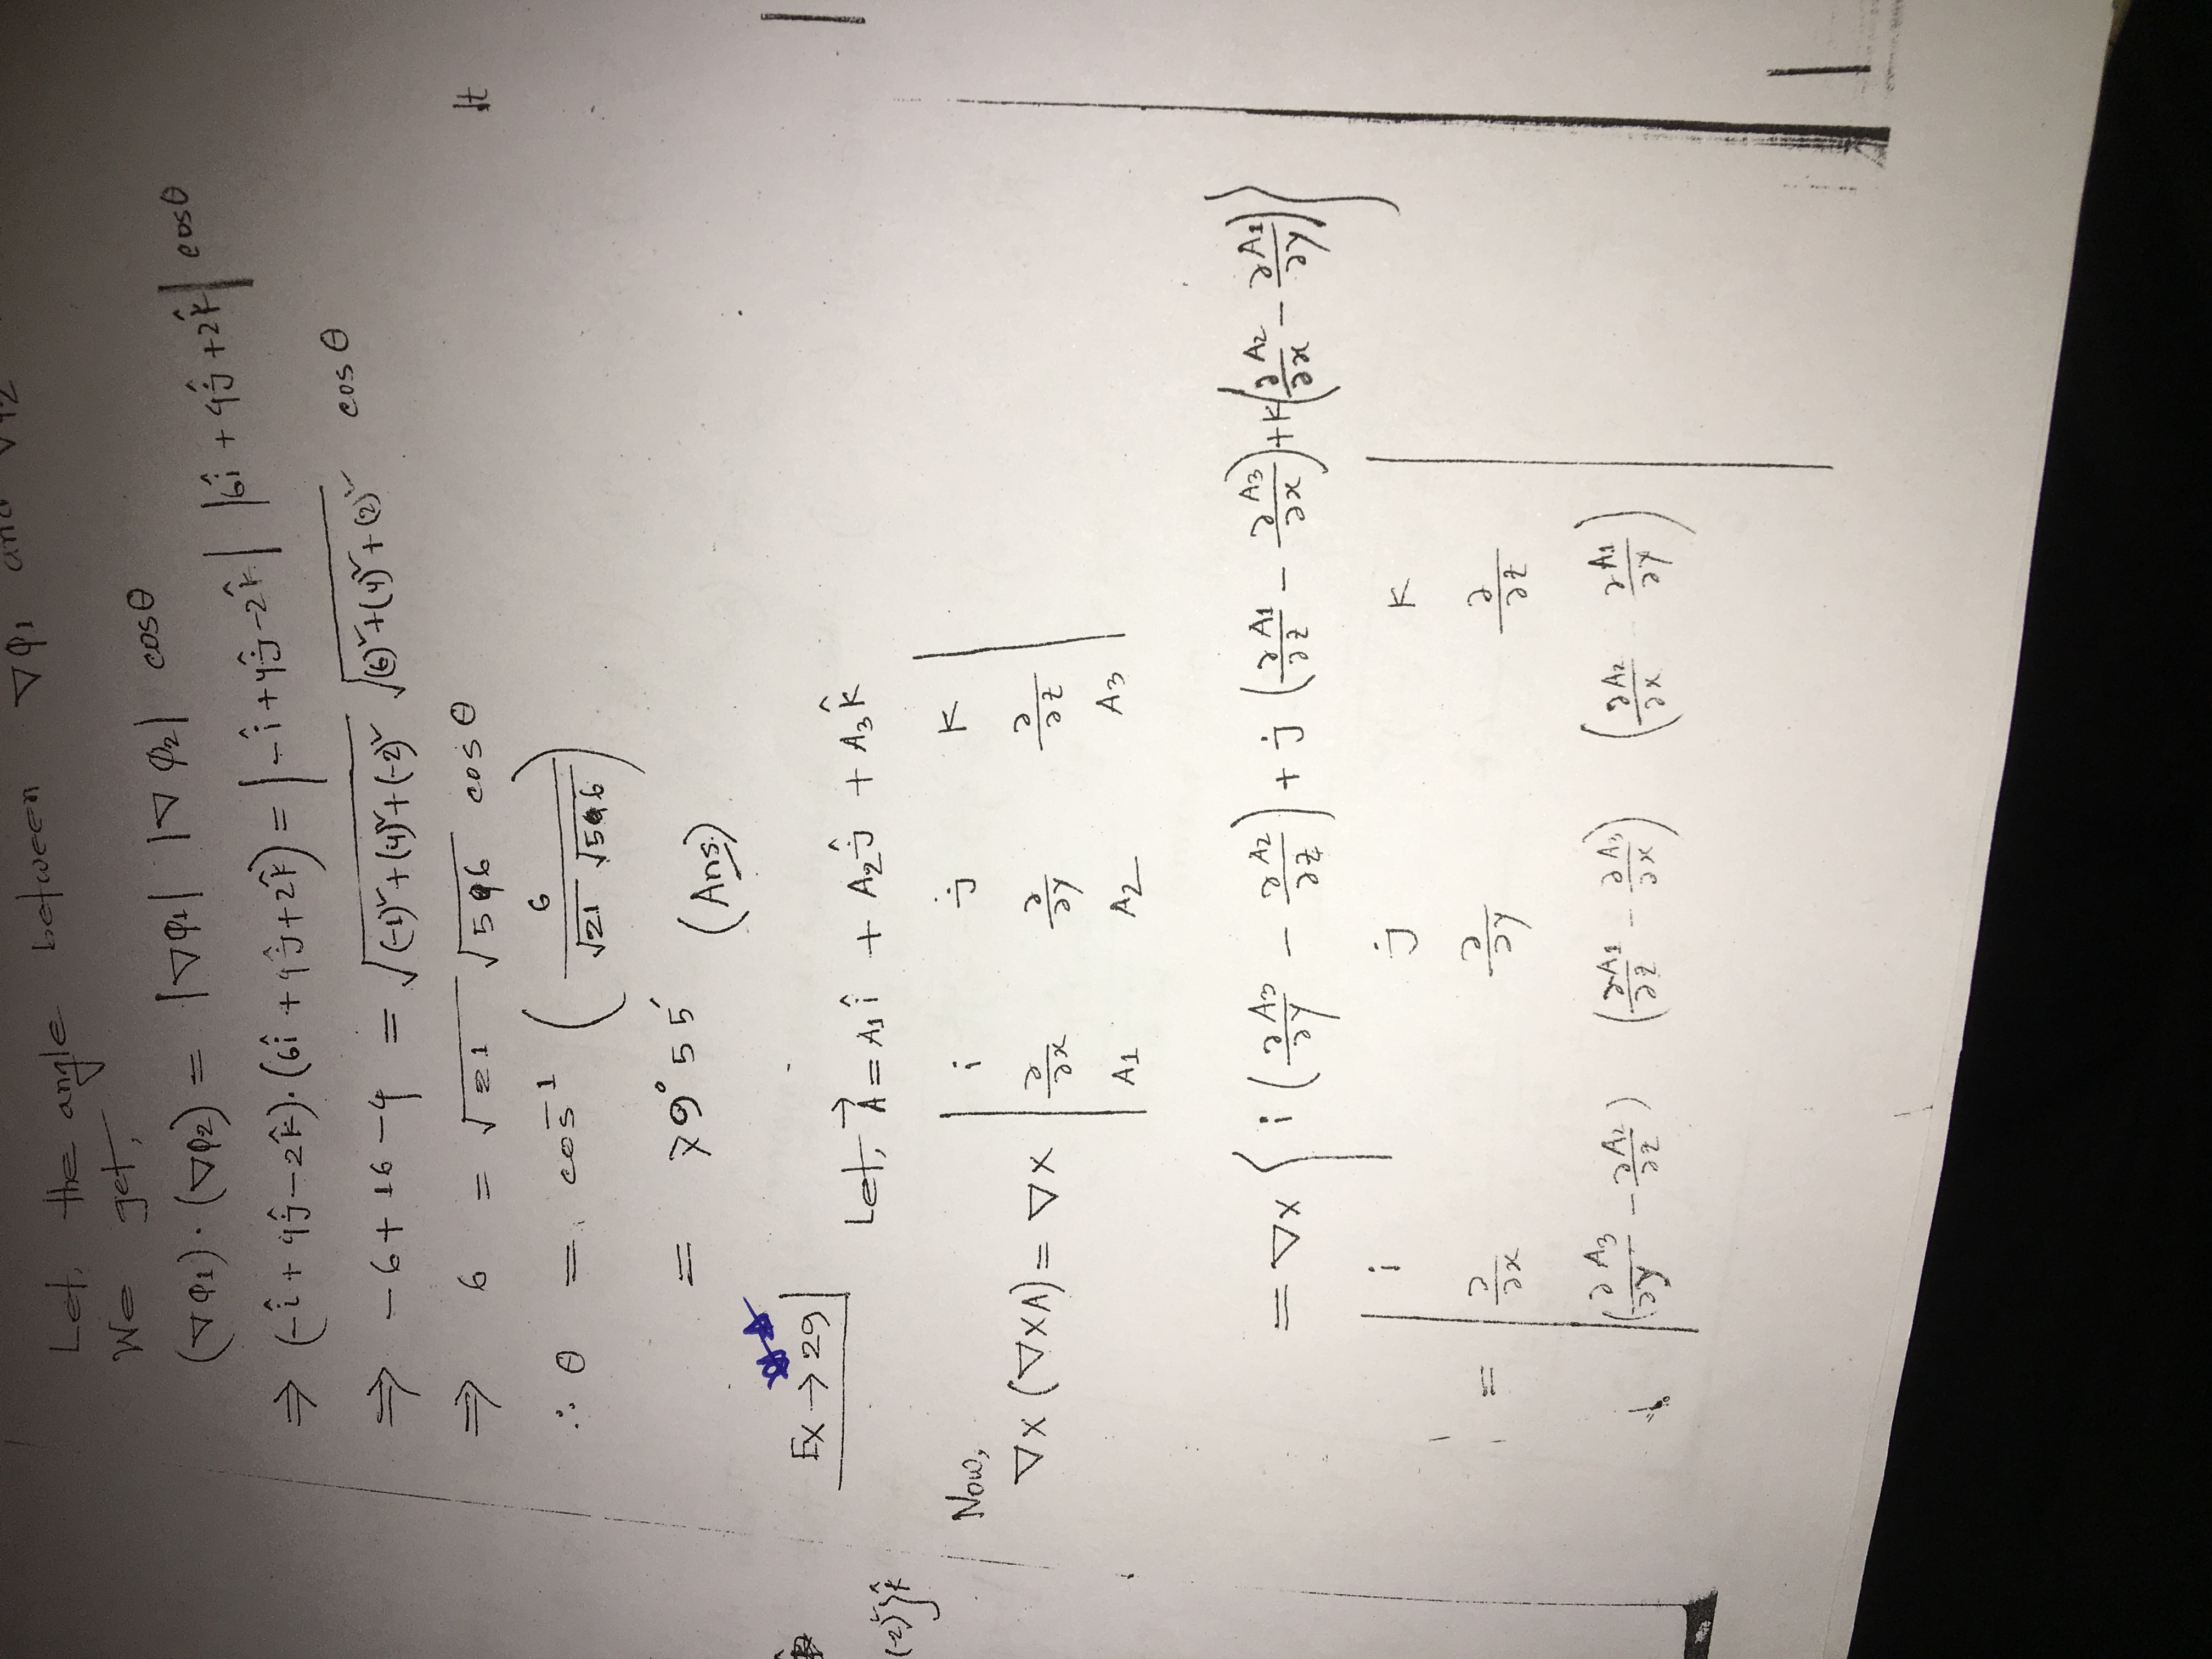 Let, the angle between ∇φ₁ and ∇φ₂
We get,
(∇φ₁)·(∇φ₂) = |∇φ₁| |∇φ₂| cosθ
⇒ (-î + 4ĵ - 2k̂)·(6î + 4ĵ + 2k̂) = |-î + 4ĵ - 2k̂| |6î + 4ĵ + 2k̂| cosθ
⇒ -6 + 16 - 4 = √((-1)² + (4)² + (-2)²) √((6)² + (4)² + (2)²) cosθ
⇒ 6 = √21 √56 cosθ
∴ θ = cos⁻¹ (6 / (√21 √56))
= 79°55′ (Ans.)
Ex → 29
Let, A⃗ = A₁î + A₂ĵ + A₃k̂
(-2)²}k̂
Now,
∇×(∇×A) = ∇× | i j k |
| ∂/∂x ∂/∂y ∂/∂z |
| A₁ A₂ A₃ |
= ∇× { i (∂A₃/∂y - ∂A₂/∂z) + j (∂A₁/∂z - ∂A₃/∂x) + k (∂A₂/∂x - ∂A₁/∂y) }
| i j k |
= | ∂/∂x ∂/∂y ∂/∂z |
| (∂A₃/∂y - ∂A₂/∂z) (∂A₁/∂z - ∂A₃/∂x) (∂A₂/∂x - ∂A₁/∂y) |